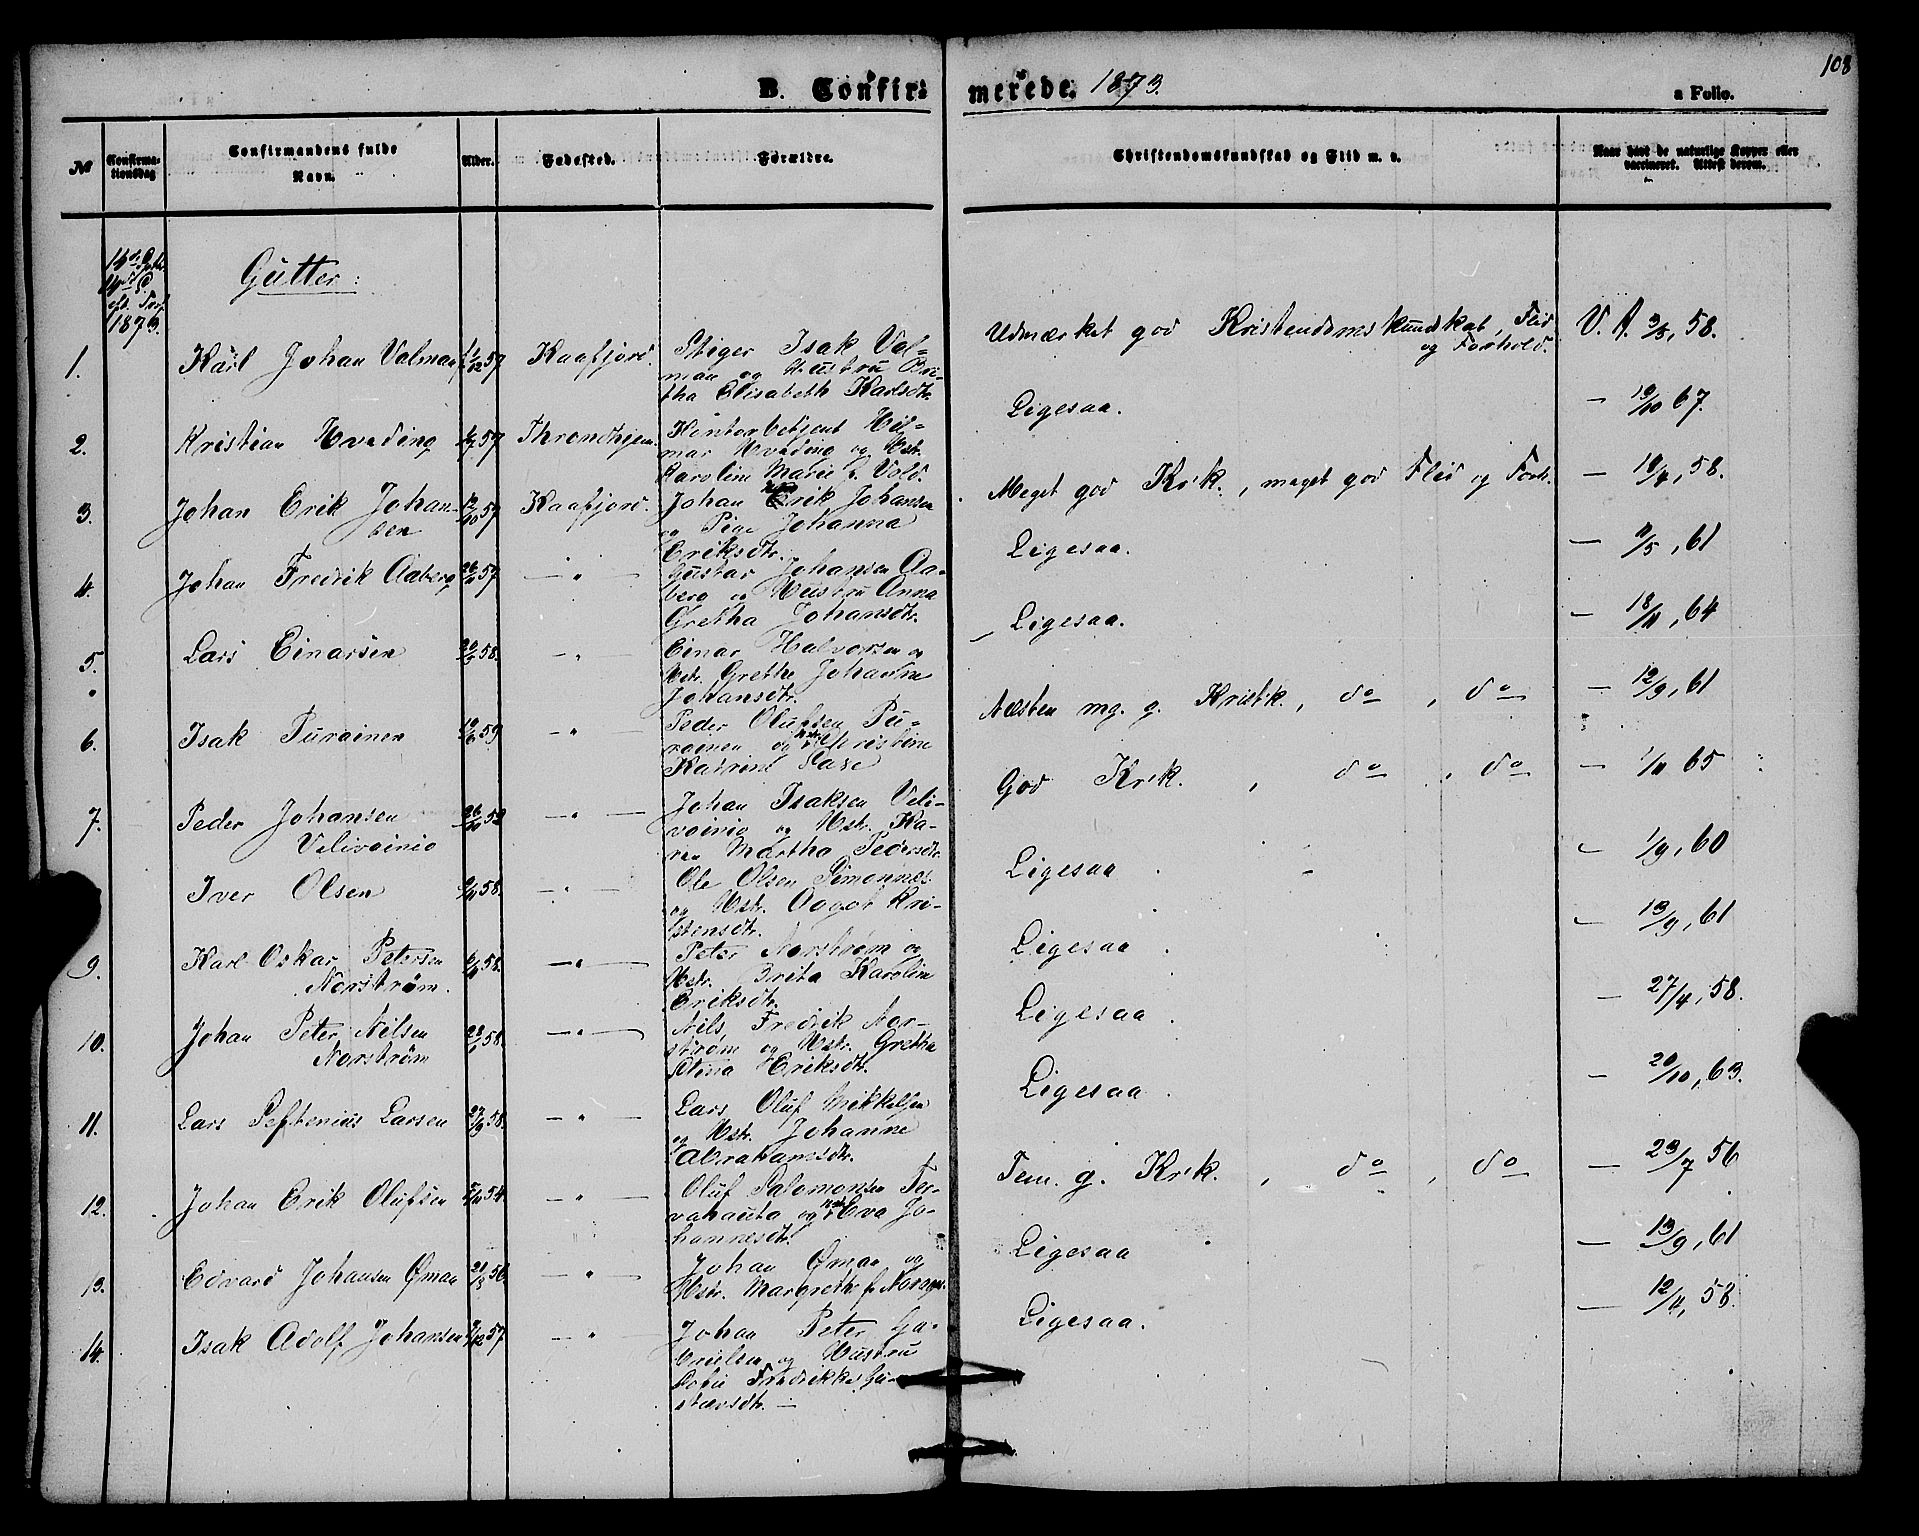 108
B. Confir= merede. 1873.
a Folio.
№ Confirma-tionsdag Confirmandens fulde Navn. Alder. Fødested. Forældre. Christendomskundskab og Flid m. v. Naar havt de naturlige Kopper eller vaccineret. Attest derom.
1873.
Gutter:
1. Karl Johan Valman 57 Kaafjord. Stiger Isak Val-
man og Hustru Bri-
tha Elisabeth Karlsdtr.
Udmærket god Kristendomskundskab, Flid
og Forhold.
V. A. 3/5, 58.
2. Kristian Hvæding 57 Throndhjem. Kontorbetjent Hil-
mar Hvæding og Hstr.
Karoline Marie f. Vold.
Ligesaa. — 19/10 67.
3. Johan Erik Johan-
sen 12/10 57 Kaafjord. Johan Erik Johansen
og Pige Johanna
Eriksdtr.
Meget god Krk., meget god Flid og Forh. — 18/4, 58.
4. Johan Fredrik Aaberg 57 — " — Gustav Johansen Aa-
berg og Hustru Anna
Gretha Johansdtr.
Ligesaa. — 11/5, 61
5. Lars Einarsen 58. — " — Einar Halvorsen og
Hstr. Grethe Johanne
Johansdtr.
Ligesaa. — 18/11, 64
6. Isak Purainen 59 — " — Peder Olufsen Pu-
rainen og Hstr. Kristine
Katrine
Næsten mg. g. Kristk., do, do — 12/9, 61
7. Peder Johansen
Velivainio 26/10 58 — " — Johan Isaksen Veli-
vainio og Hstr. Ka-
ren Martha Pedersdtr.
God Krk., do, do — 1/11 65
Iver Olsen 58. — " — Ole Olsen Simonnæs
og Hstr. Aagot Kri-
stensdtr.
Ligesaa — 1/9, 60
9. Karl Oskar Petersen
Norstrøm. 58. — " — Peter Norstrøm og
Hstr. Brita Karoline
Eriksdtr.
Ligesaa — 13/9, 61
10. Johan Peter Nilsen
Norstrøm 58. — " — Nils Fredrik Nor-
strøm og Hstr. Gretha
Stina Heriksdtr.
Ligesaa — 27/4, 58.
11. Lars Larsen 27/9 58. — " — Lars Oluf Mikkelsen
og Hstr. Johanne
Abrahamsdtr.
Ligesaa — 20/10, 63.
12. Johan Erik Olufsen 54 — " — Oluf Salomonsen Ter-
vahauta og Hstr. Eva Jo-
hannesdtr.
Tem. g. Krk., do, do — 23/7 56
13. Edvard Johansen Øman 56. — " — Johan Øman og
Hstr. Margrethe f.
Ligesaa — 13/9, 61
14. Isak Adolf Johansen 57 — " — Johan Peter Ga-
brielsen og Hustru
Sofie Fredrikke Gu-
stavsdtr. —
Ligesaa. — 12/4, 58.